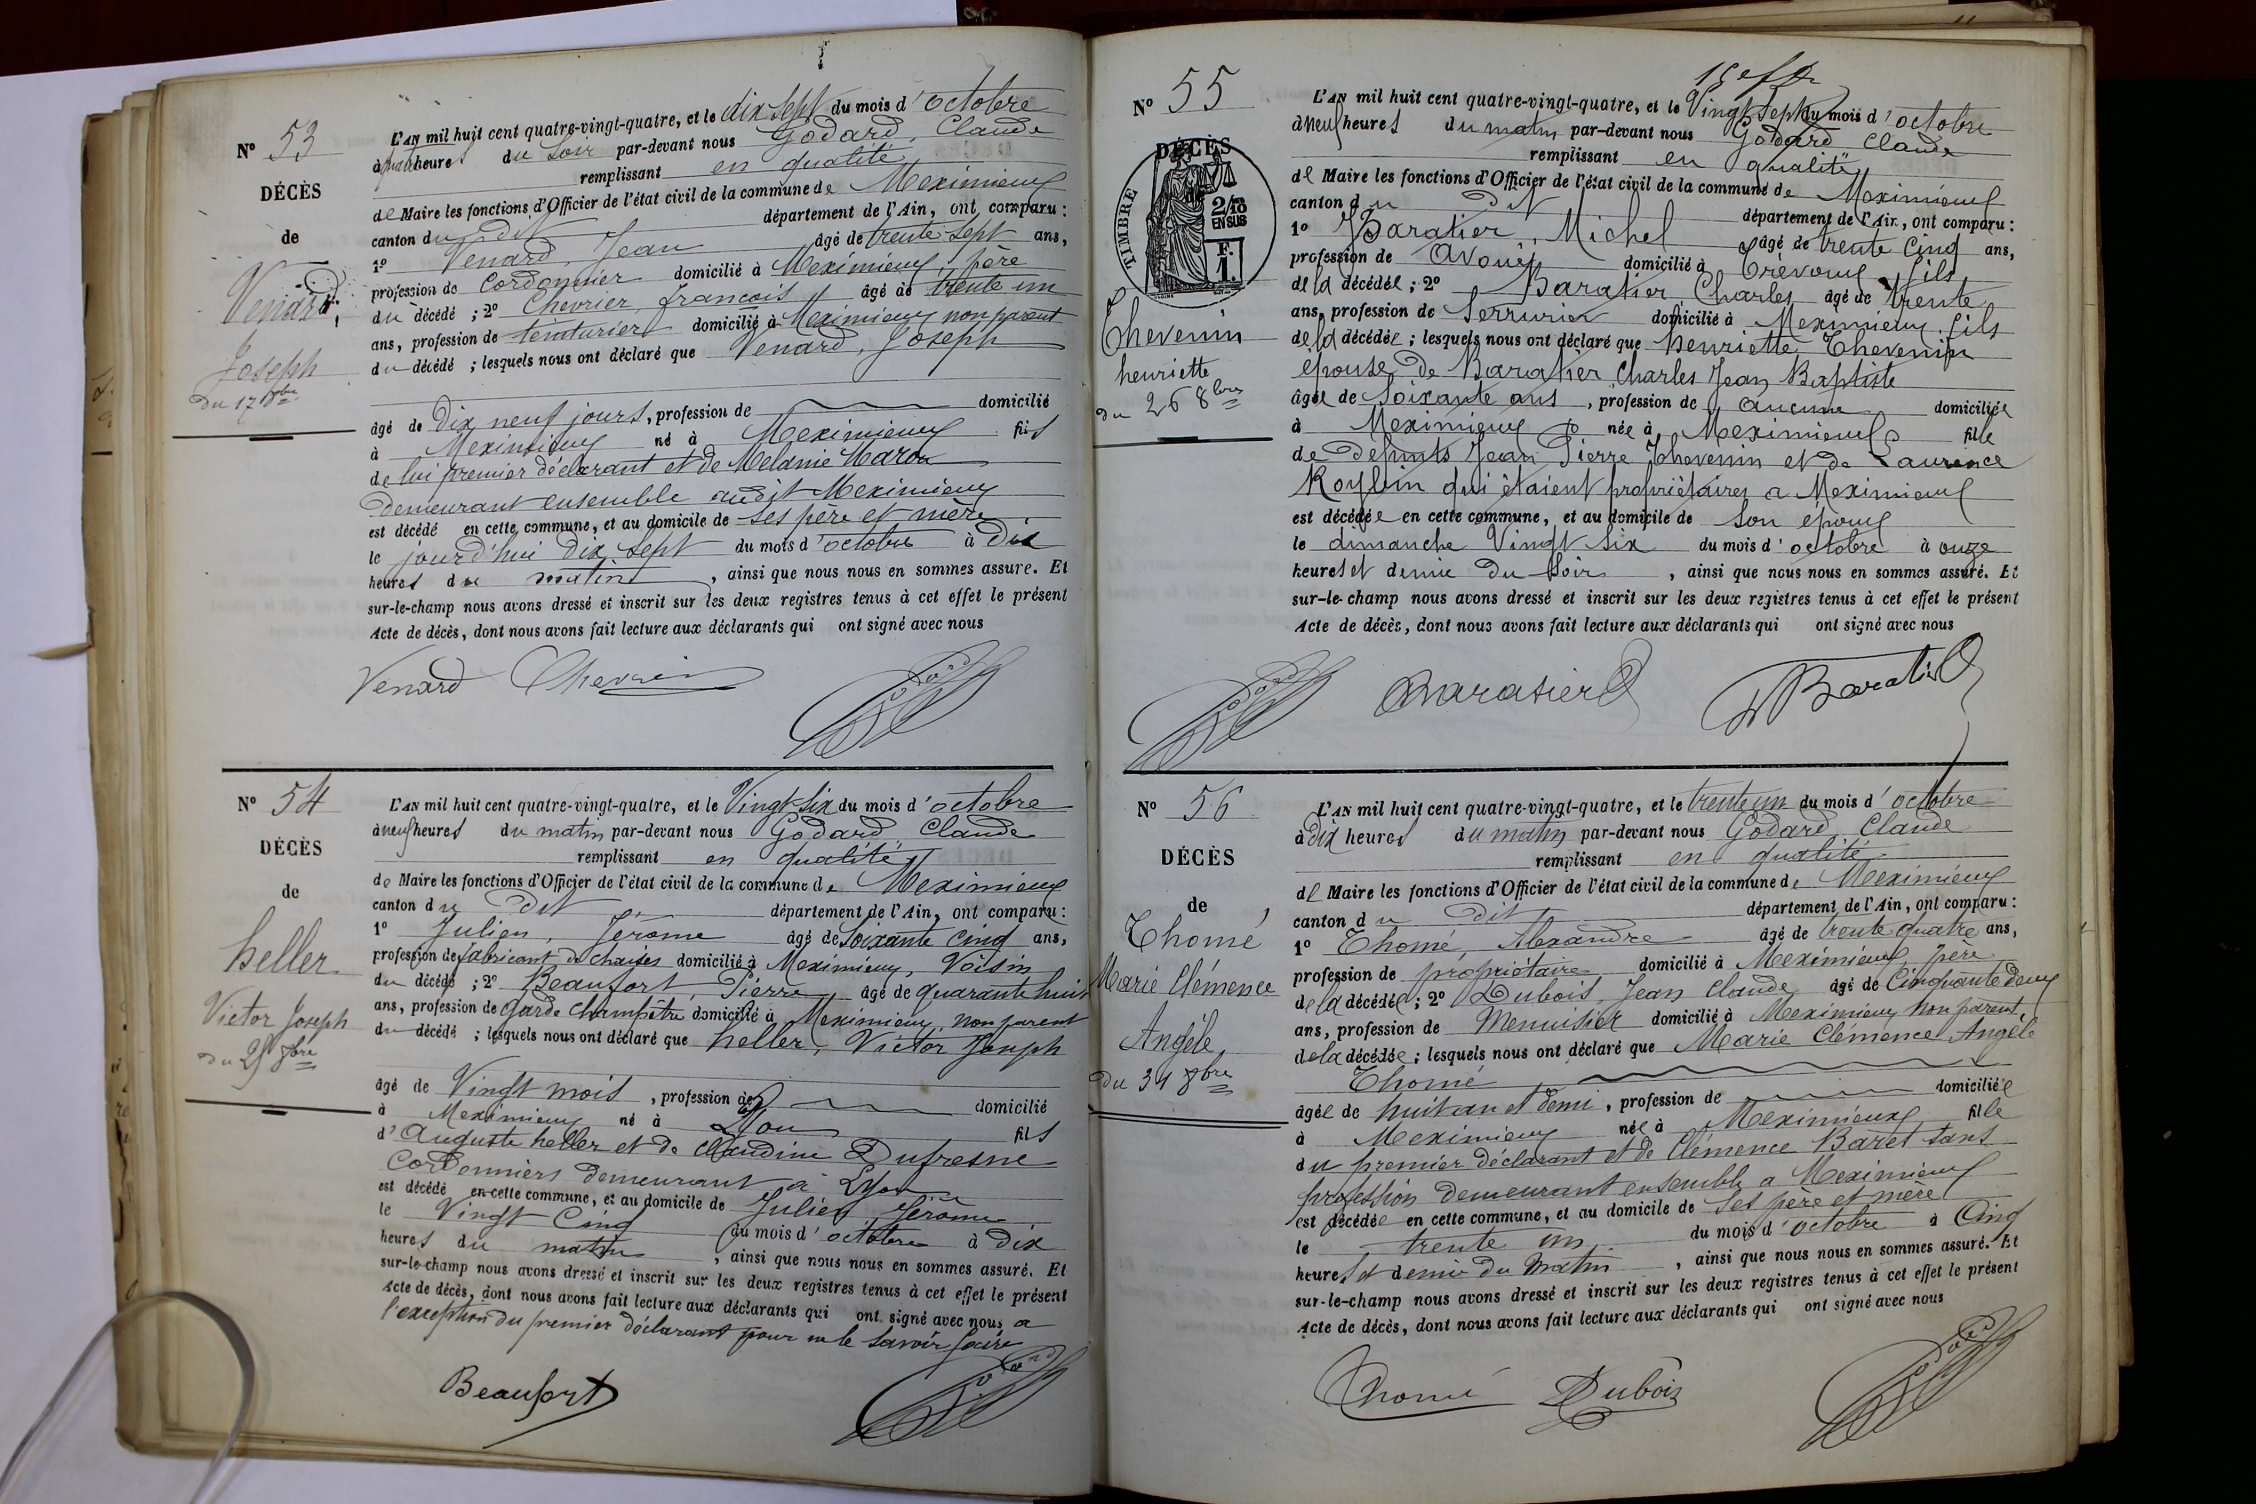 N° 53
DÉCÈS
de
Venard,
Joseph
du 17 8bre
L'AN mil huit cent quatre-vingt-quatre, et le dix sept du mois d'octobre
à quatre heures du soir par-devant nous Godard, Claude
remplissant en qualité
de Maire les fonctions d'Officier de l'état civil de la commune de Meximieux
canton du dit département de l'Ain, ont comparu :
1° Venard, Jean âgé de trente sept ans,
profession de Cordonnier domicilié à Meximieux, père
du décédé ; 2° Chevrier, françois âgé de trente un
ans, profession de teinturier domicilié à Meximieux non parent
du décédé ; lesquels nous ont déclaré que Venard, Joseph
âgé de Dix neuf jours, profession de domicilié
à Meximieux né à Meximieux fils
de lui premier déclarant et de Melanie Maron
demeurant ensemble audit Meximieux
est décédé en cette commune, et au domicile de ses père et mère
le jourd'hui Dix sept du mois d'octobre à Dix
heures du matin, ainsi que nous nous en sommes assuré. Et
sur-le-champ nous avons dressé et inscrit sur les deux registres tenus à cet effet le présent
Acte de décès, dont nous avons fait lecture aux déclarants qui ont signé avec nous
Venard Chevrier
N° 54
DÉCÈS
de
heller
Victor Joseph
du 25 8bre
L'AN mil huit cent quatre-vingt-quatre, et le Vingt six du mois d'octobre
à neuf heures du matin par-devant nous Godard, Claude
remplissant en qualité
de Maire les fonctions d'Officier de l'état civil de la commune de Meximieux
canton du dit département de l'Ain, ont comparu :
1° Julien, Jérôme âgé de soixante cinq ans,
profession de fabricant de chaises domicilié à Meximieux, Voisin
du décédé ; 2° Beaufort, Pierre âgé de quarante huit
ans, profession de Garde Champêtre domicilié à Meximieux, non parent
du décédé ; lesquels nous ont déclaré que heller, Victor Joseph
âgé de Vingt mois, profession de domicilié
à Meximieux né à Lyon fils
d'Auguste heller et de Claudine Dufresne
Cordonniers demeurant à Lyon
est décédé en cette commune, et au domicile de Julien Jérôme
le Vingt Cinq du mois d'octobre à Dix
heures du matin, ainsi que nous nous en sommes assuré. Et
sur-le-champ nous avons dressé et inscrit sur les deux registres tenus à cet effet le présent
Acte de décès, dont nous avons fait lecture aux déclarants qui ont signé avec nous a
l'exception du premier déclarant pour ne le savoir faire
Beaufort
N° 55
DÉCÈS
TIMBRE
2/10
EN SUS
F.
1.
Thevenin
henriette
du 26 8bre
L'AN mil huit cent quatre-vingt-quatre, et le Vingt sept du mois d'octobre
à neuf heures du matin par-devant nous Godard Claude
remplissant en qualité
de Maire les fonctions d'Officier de l'état civil de la commune de Meximieux
canton du dit département de l'Ain, ont comparu :
1° Baratier, Michel âgé de trente cinq ans,
profession de Avoué domicilié à Trévoux fils
de la décédée ; 2° Baratier, Charles âgé de trente
ans, profession de Serrurier domicilié à Meximieux, fils
de la décédée ; lesquels nous ont déclaré que henriette Thevenin
épouse de Baratier, Charles Jean Baptiste
âgée de soixante ans, profession de aucune domiciliée
à Meximieux née à Meximieux fille
de défunts Jean Pierre Thevenin et de Laurence
Roybin qui étaient propriétaires a Meximieux
est décédée en cette commune, et au domicile de son époux
le dimanche Vingt six du mois d'octobre à onze
heures et demie du soir, ainsi que nous nous en sommes assuré. Et
sur-le-champ nous avons dressé et inscrit sur les deux registres tenus à cet effet le présent
Acte de décès, dont nous avons fait lecture aux déclarants qui ont signé avec nous
Baratier Baratier
N° 56
DÉCÈS
de
Thomé
Marie Clémence
Angèle
Du 31 8bre
L'AN mil huit cent quatre-vingt-quatre, et le trente un du mois d'octobre
à dix heures du matin par-devant nous Godard, Claude
remplissant en qualité
de Maire les fonctions d'Officier de l'état civil de la commune de Meximieux
canton du dit département de l'Ain, ont comparu :
1° Thomé, Alexandre âgé de trente quatre ans,
profession de propriétaire domicilié à Meximieux, père
de la décédée ; 2° Dubois, Jean Claude âgé de Cinquante deux
ans, profession de Menuisier domicilié à Meximieux non parent,
de la décédée ; lesquels nous ont déclaré que Marie Clémence Angèle
Thomé
âgée de huit an et demi, profession de domiciliée
à Meximieux née à Meximieux fille
du premier déclarant et de Clémence Baret sans
profession demeurant ensemble a Meximieux
est décédée en cette commune, et au domicile de ses père et mère
le trente un du mois d'octobre à Cinq
heures et demie du matin, ainsi que nous nous en sommes assuré. Et
sur-le-champ nous avons dressé et inscrit sur les deux registres tenus à cet effet le présent
Acte de décès, dont nous avons fait lecture aux déclarants qui ont signé avec nous
Thomé Dubois